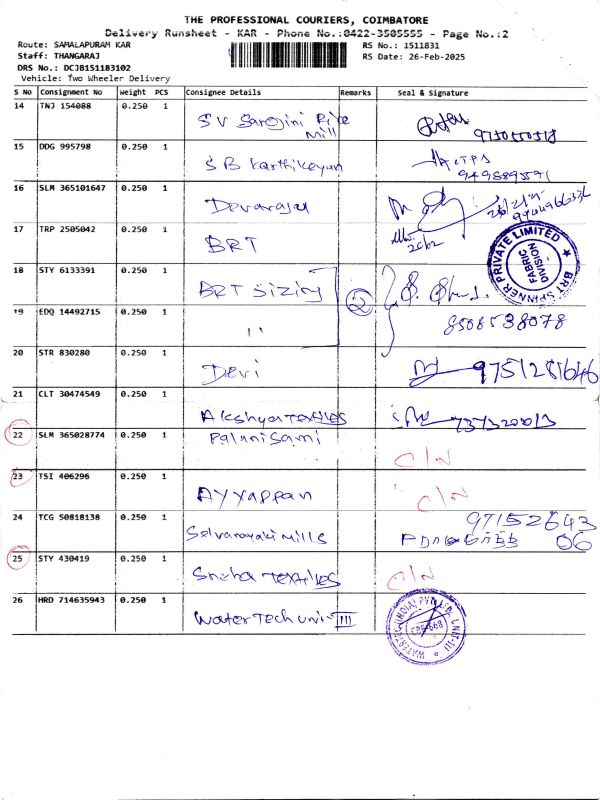 THE PROFESSIONAL COURIERS, COIMBATORE
Delivery Runsheet - KAR - Phone No.:0422-3505555 - Page No.:2
Route: SAMALAPURAM KAR
RS No.: 1511831
Staff: THANGARAJ
RS Date: 26-Feb-2025
DRS No.: DCJB151183102
Vehicle: Two Wheeler Delivery
S No Consignment No Weight PCS Consignee Details Remarks Seal & Signature
14 TNJ 154088 0.250 1
SV Sarojini Rice
Mill
15 DDG 995798 0.250 1
SB Karthikeyan
16 SLM 365101647 0.250 1
Devaraju
17 TRP 2505042 0.250 1
BRT
BRT SPINNER PRIVATE LIMITED
FABRIC
DIVISION
18 STY 6133391 0.250 1
BRT Sizing
2
19 EDQ 14492715 0.250 1
"
8508538078
20 STR 830280 0.250 1
Devi
9751281646
21 CLT 30474549 0.250 1
Akshya Textiles
22 SLM 365028774 0.250 1
Palanisami
C/N
23 TSI 406296 0.250 1
Ayyappan
C/N
24 TCG 50818138 0.250 1
Selvanayaki Mills
97152643
06
25 STY 430419 0.250 1
Sneha Textiles
C/N
26 HRD 714635943 0.250 1
Water Tech unit III